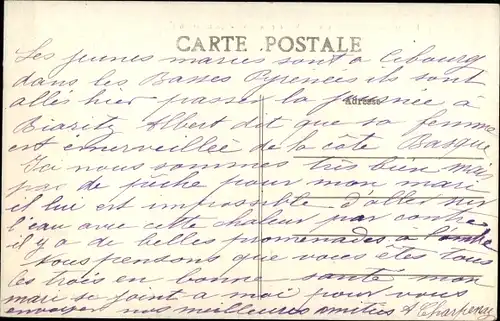 CARTE POSTALE
Les jeunes maries sont a Cibourg
dans les Basses Pyrenees ils sont
allés hier passer la journée à
Adresse
Biaritz Albert dit que sa femme
est émerveillée de la côte Basque
Ici nous sommes très bien mais
pas de pêche pour mon mari
il lui est impossible d'aller sur
l'eau avec cette chaleur par contre
il y a de belles promenades à l'ombre
Nous pensons que vous êtes tous
les trois en bonne santé mon
mari se joint a moi pour vous
envoyer nos meilleures amitiés A Charpenay